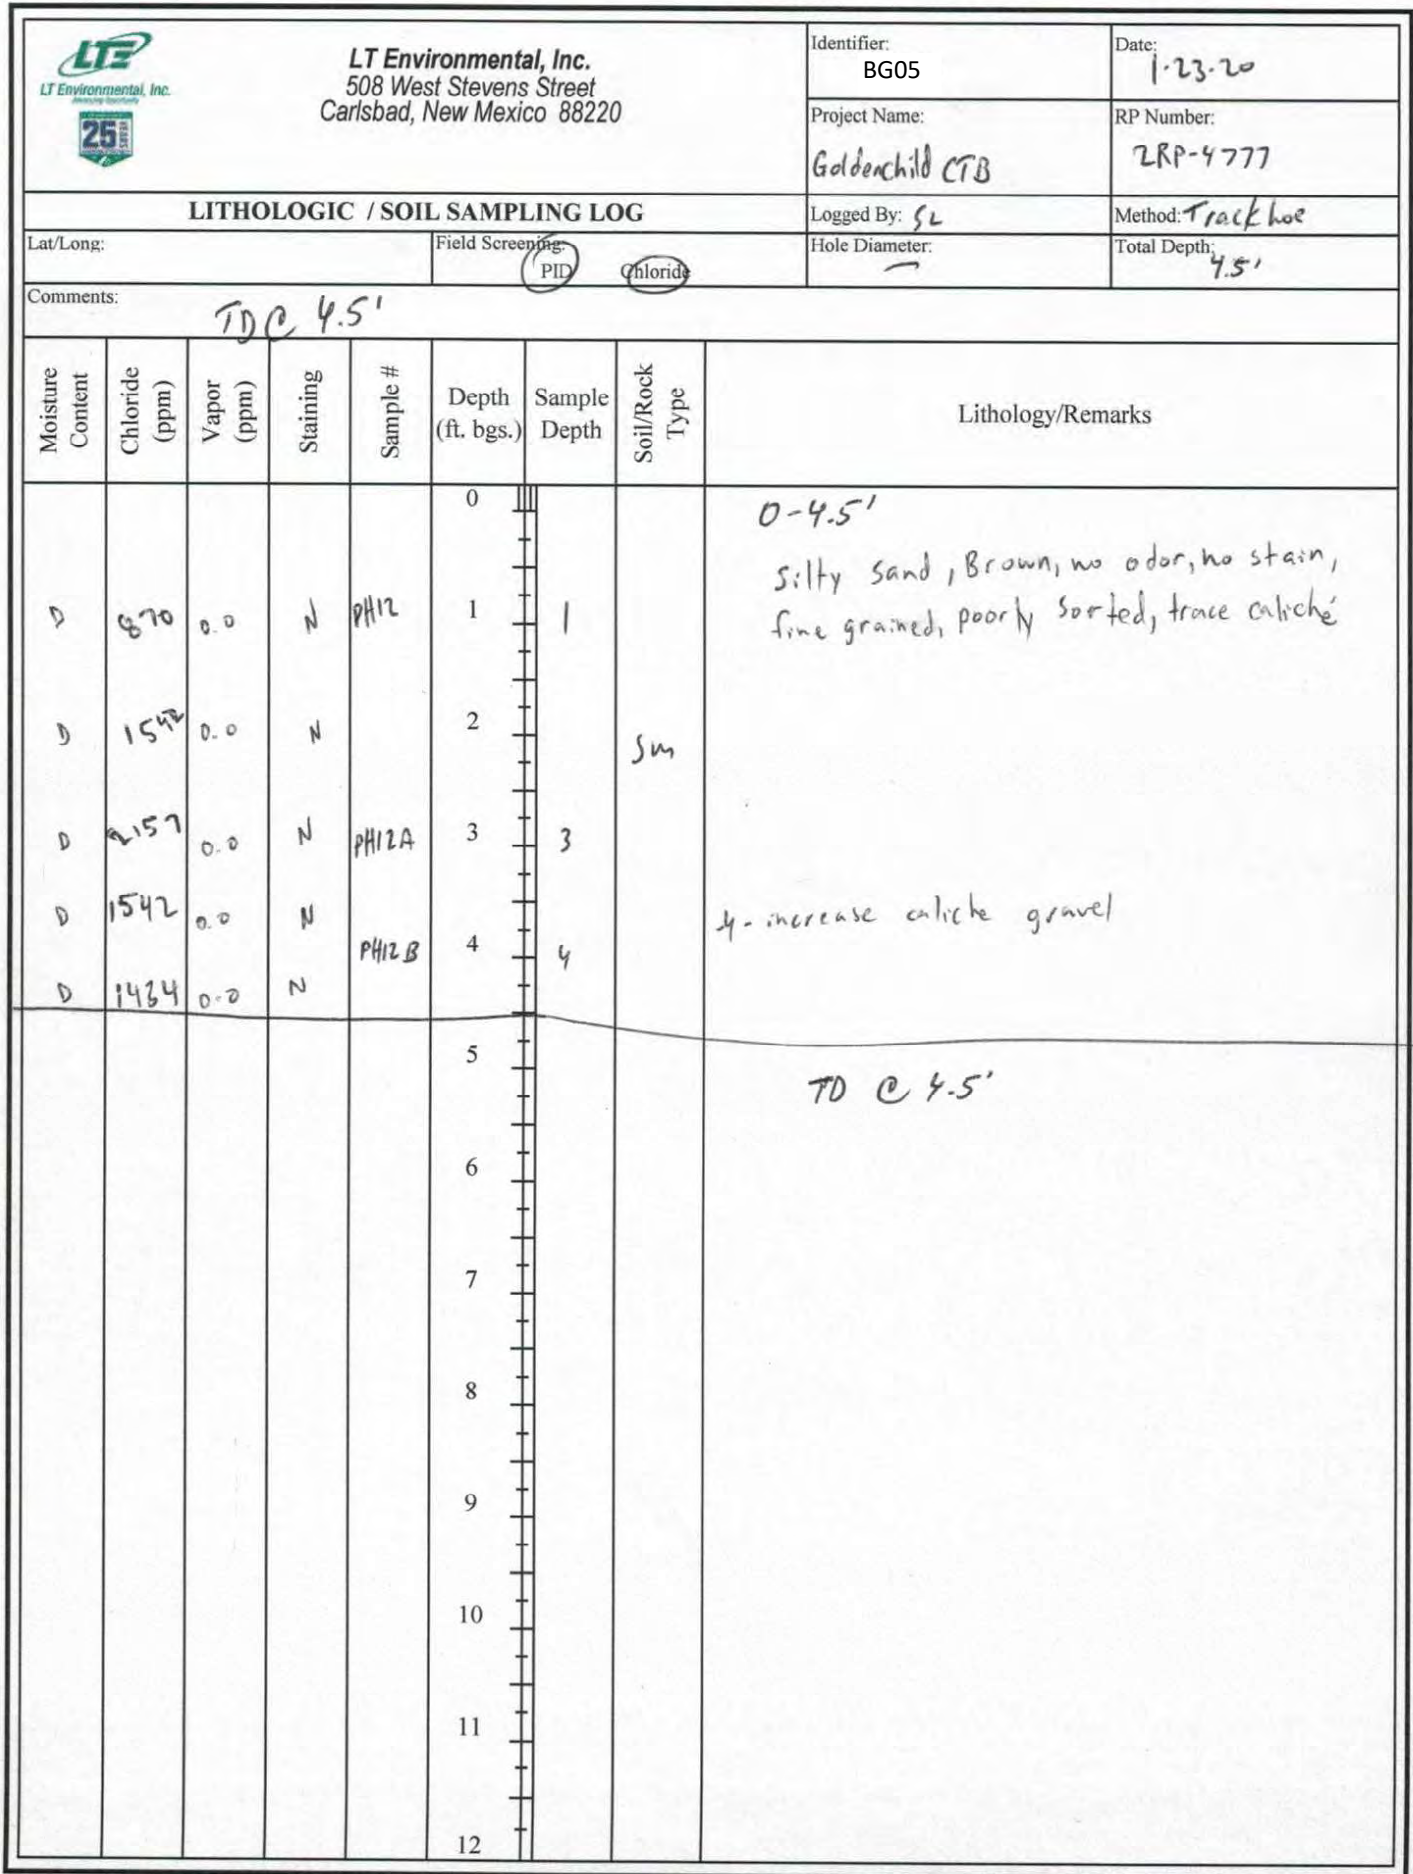 LTE
LT Environmental, Inc.
25 YEARS
LT Environmental, Inc.
508 West Stevens Street
Carlsbad, New Mexico 88220
Identifier:
BG05
Date:
1-23-20
Project Name:
Goldenchild CTB
RP Number:
2RP-4777
LITHOLOGIC / SOIL SAMPLING LOG
Logged By: SL
Method: Trackhoe
Lat/Long:
Field Screening:
PID Chloride
Hole Diameter:
—
Total Depth:
4.5'
Comments:
TD @ 4.5'
Moisture Content
Chloride (ppm)
Vapor (ppm)
Staining
Sample #
Depth (ft. bgs.)
Sample Depth
Soil/Rock Type
Lithology/Remarks
0
0-4.5'
silty sand, Brown, no odor, no stain,
fine grained, poorly sorted, trace caliche
D 870 0.0 N PH12 1 1
D 1542 0.0 N 2
Sm
D 2157 0.0 N PH12A 3 3
D 1542 0.0 N
4- increase caliche gravel
PH12B 4 4
D 1434 0.0 N
5
TD @ 4.5'
6
7
8
9
10
11
12